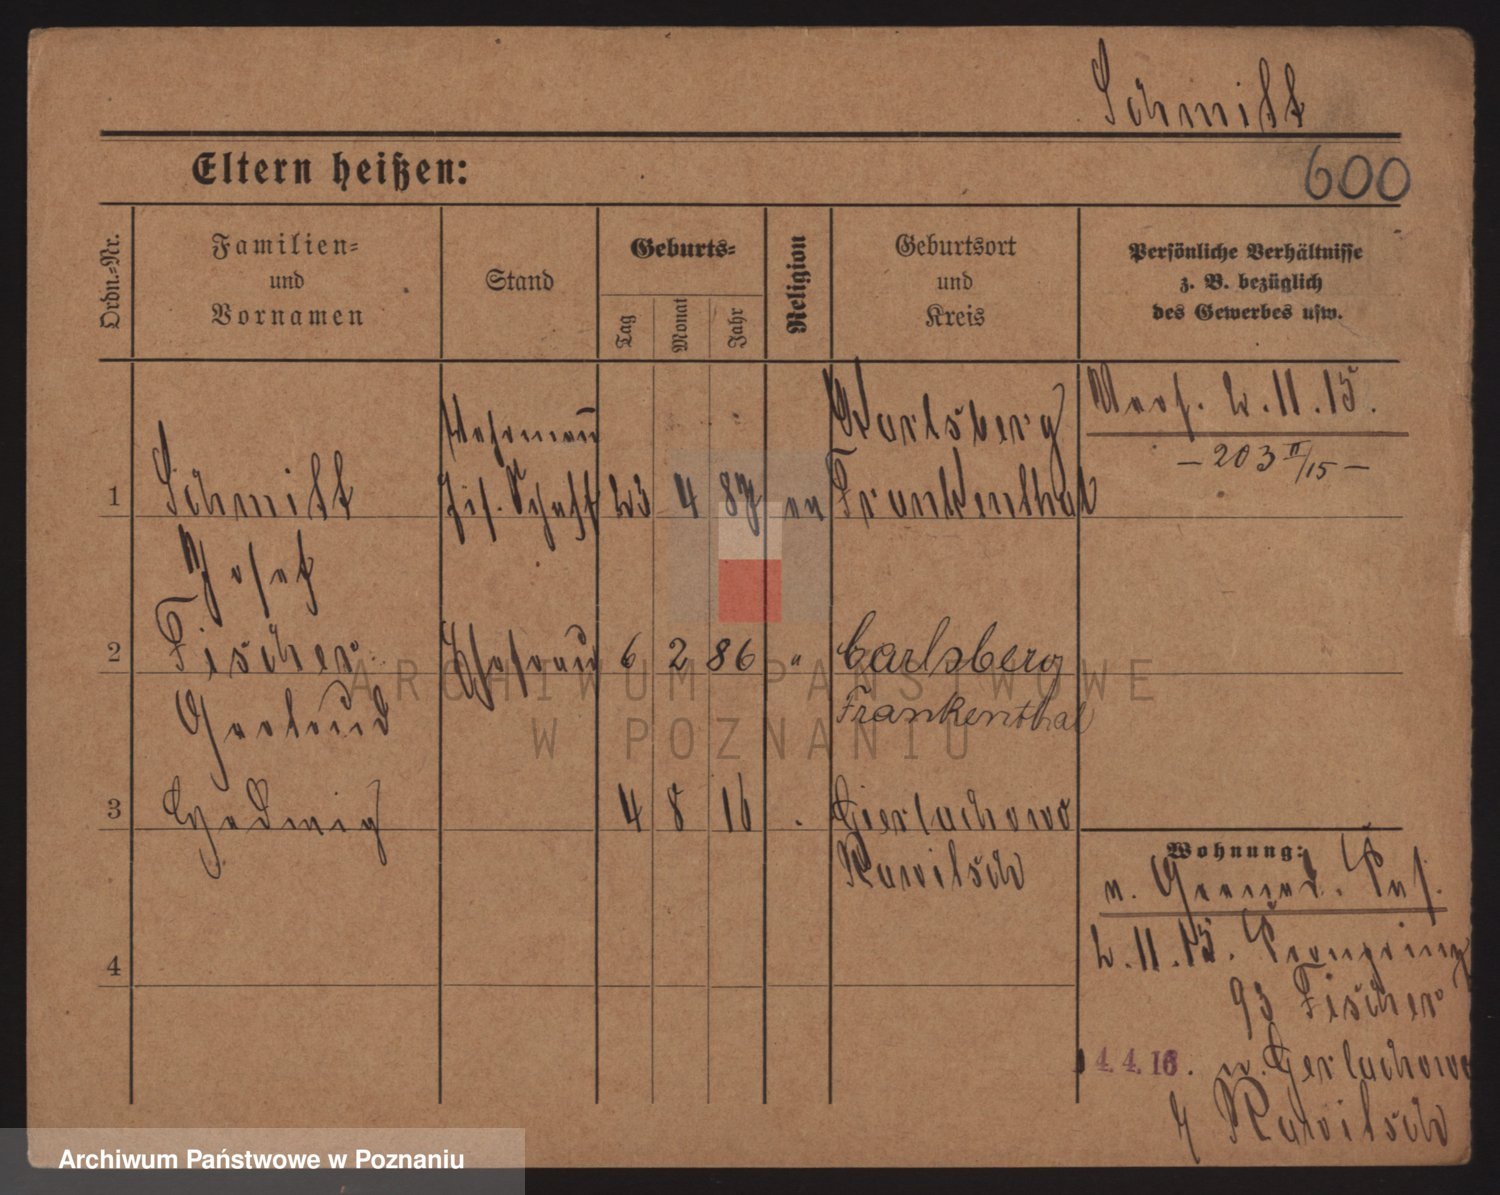 Schmitt
600
Eltern heißen:
Ordn.-Nr.
Familien-
und
Vornamen
Stand
Geburts-
Tag
Monat
Jahr
Religion
Geburtsort
und
Kreis
Persönliche Verhältnisse
z. B. bezüglich
des Gewerbes usw.
Verh. 2.11.15.
– 203 II/15 –
Wehrmann
Karlsberg
1 Schmitt 23 4 87 ev Frankenthal
Josef
2 Fischer Ehefrau 6 2 86 " Carlsberg
Gertrud Frankenthal
3 Hedwig 4 8 16 . Gierlachowo
Rawitsch
Wohnung:
v. Pos.
2.11.15. Kronprinz
93 Fischer
4
4.4.16. n. Gerlachowo
Rawitsch
ARCHIWUM PAŃSTWOWE
W POZNANIU
Archiwum Państwowe w Poznaniu